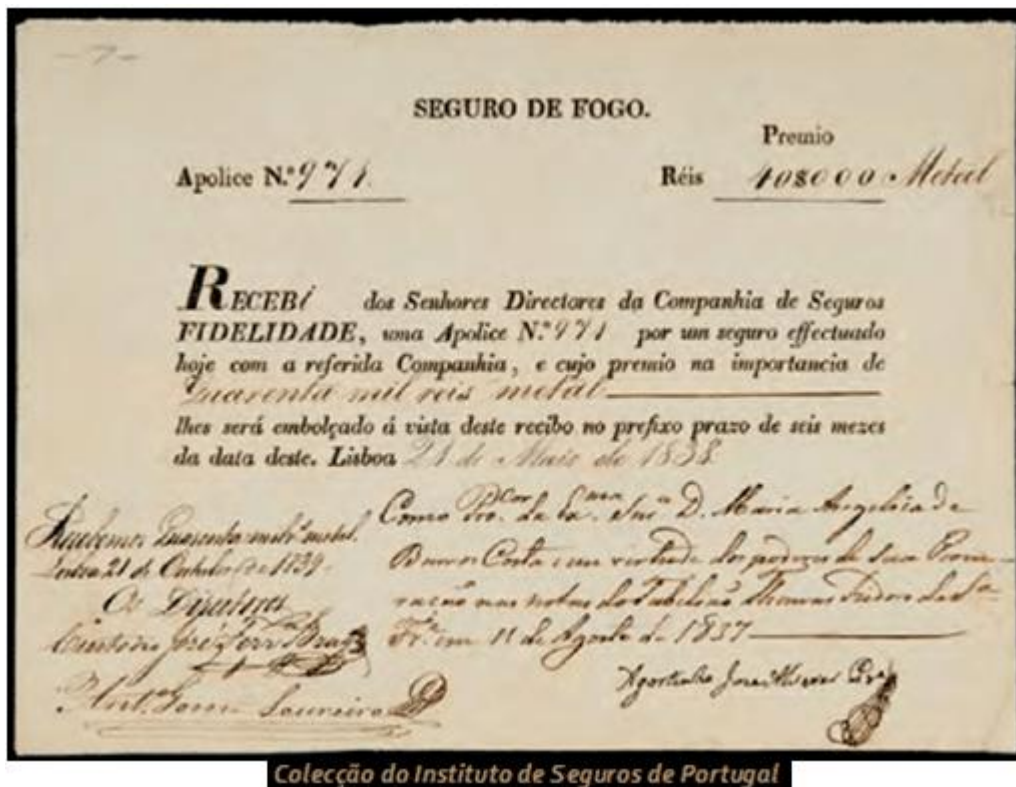 SEGURO DE FOGO.
Premio
Apolice N.º 971
Réis 40$000 Metal
RECEBI dos Senhores Directores da Companhia de Seguros
FIDELIDADE, uma Apolice N.º 971 por um seguro effectuado
hoje com a referida Companhia, e cujo premio na importancia de
Quarenta mil reis metal
lhes será embolçado á vista deste recibo no prefixo prazo de seis mezes
da data deste. Lisboa 21 de Maio de 1838
Recebemos Quarenta mil rs. metal.
21 de Outubro de
Os Directores
José Ferrª Braga
Antº. Loureiro
Como Pro.cor da Ex.ma Snrª D. Maria Angelica de
Barros Costa em virtude dos poderes de sua Procu-
ração nas notas do Tabelião Thomas
em 11 de Agosto de 1837
Agostinho José
Colecção do Instituto de Seguros de Portugal